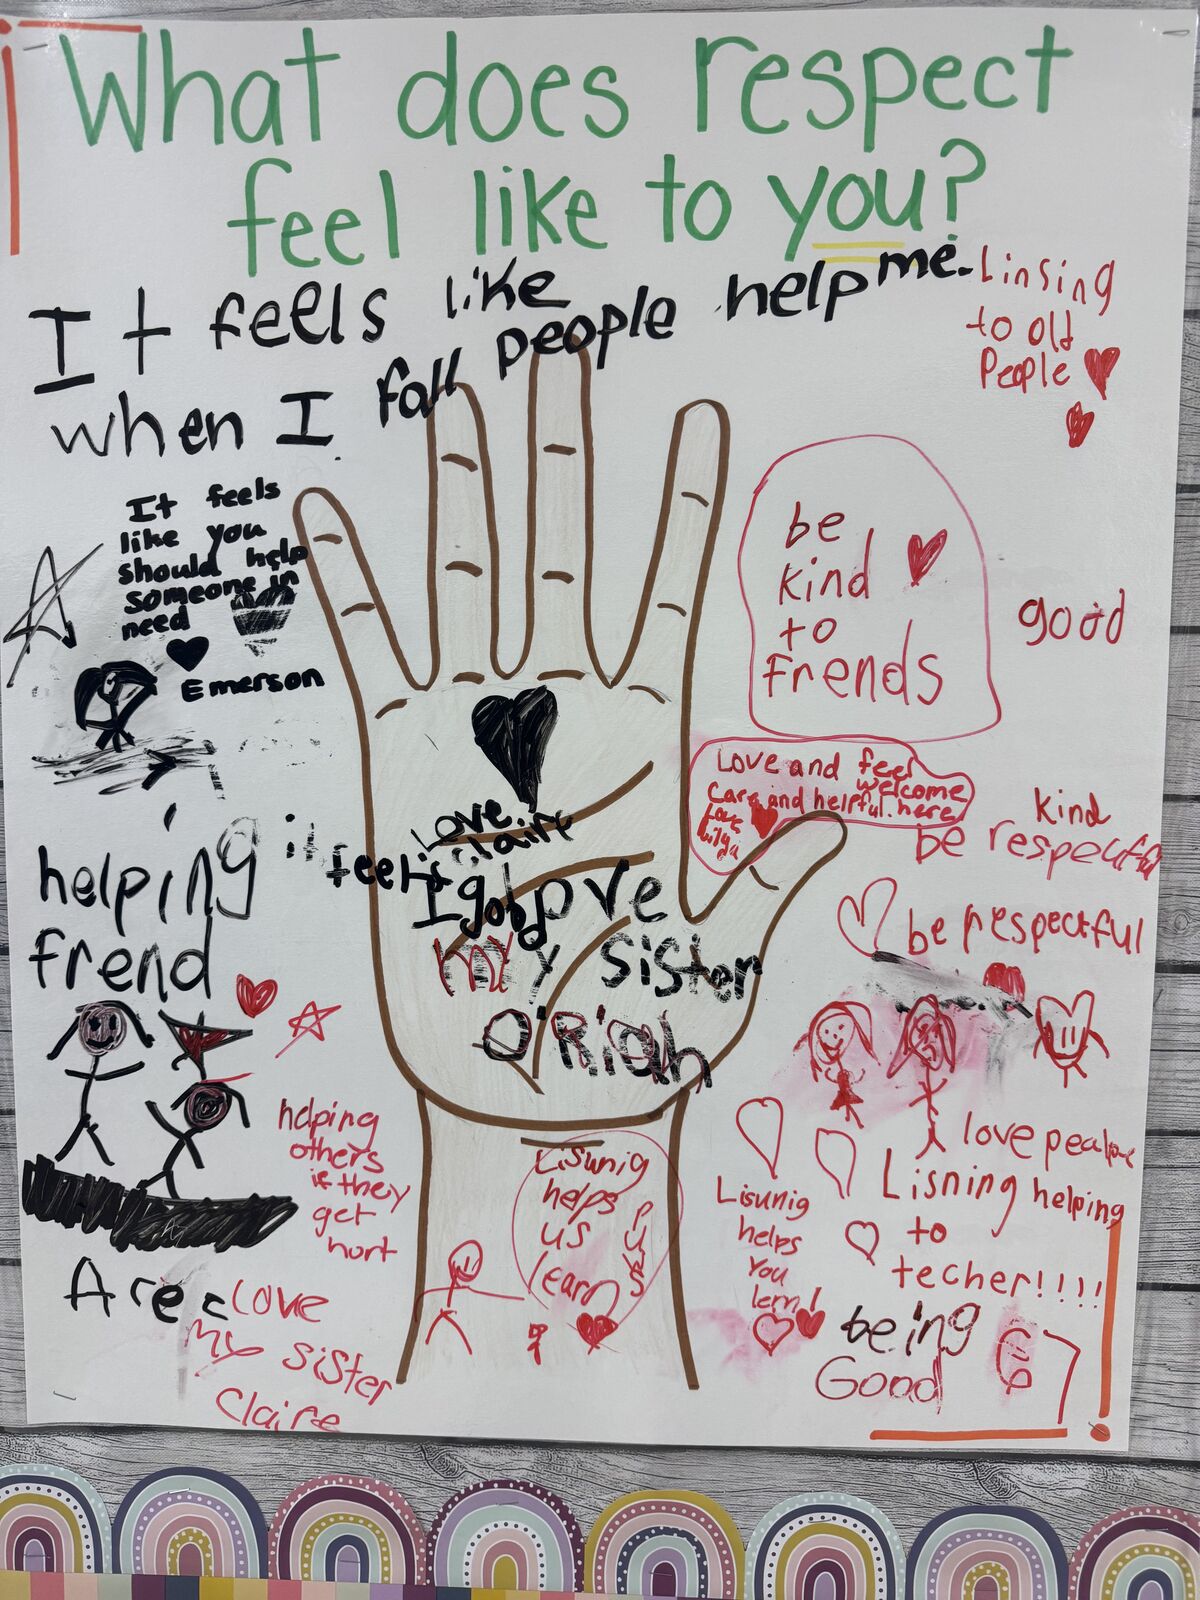 What does respect
feel like to you?
It feels like
when I fall people help me.
Linsing
to old
People
It feels
like you
should help
someone in
need
Emerson
be
kind
to
Frends
good
Love and feel
welcome
Care and helpful. here
Love
kind
be respectful
be respectful
helping
frend
Love
Claire
it
feels
I
Love
my sister
O'Riah
love
helping
others
if they
get
hurt
Lisunig
helps
us
learn
Lisunig
helps
You
lern!
Lisning helping
to
techer!!!!
Are
Love
My sister
Claire
being
Good